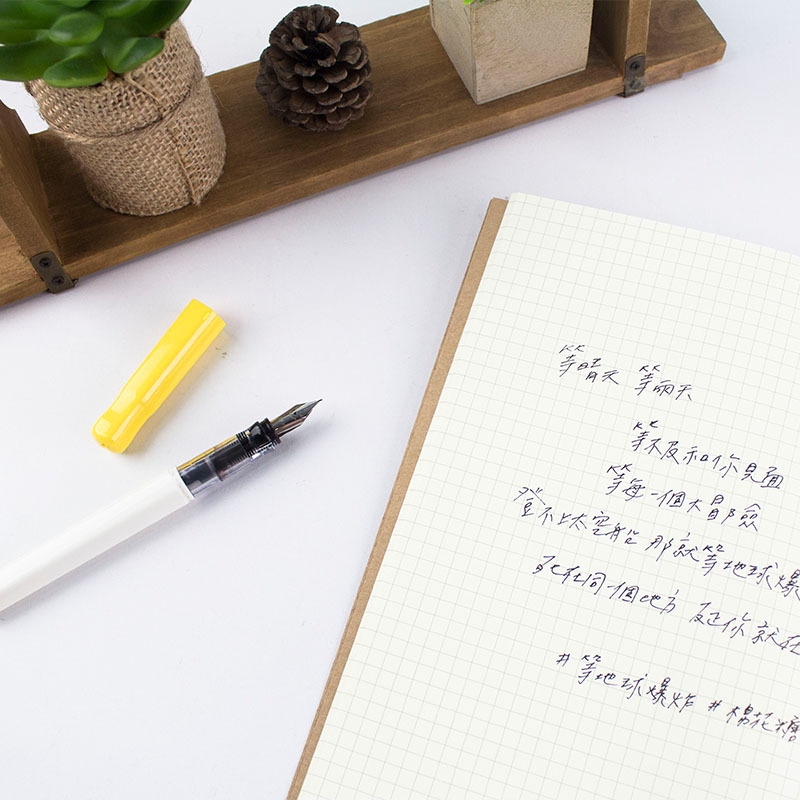 等晴天 等雨天
等不及和你見面
等每一個大冒險
登不上太空船 那就等地球爆
死在同一個地方 反正你就在
#等地球爆炸 #棉花糖